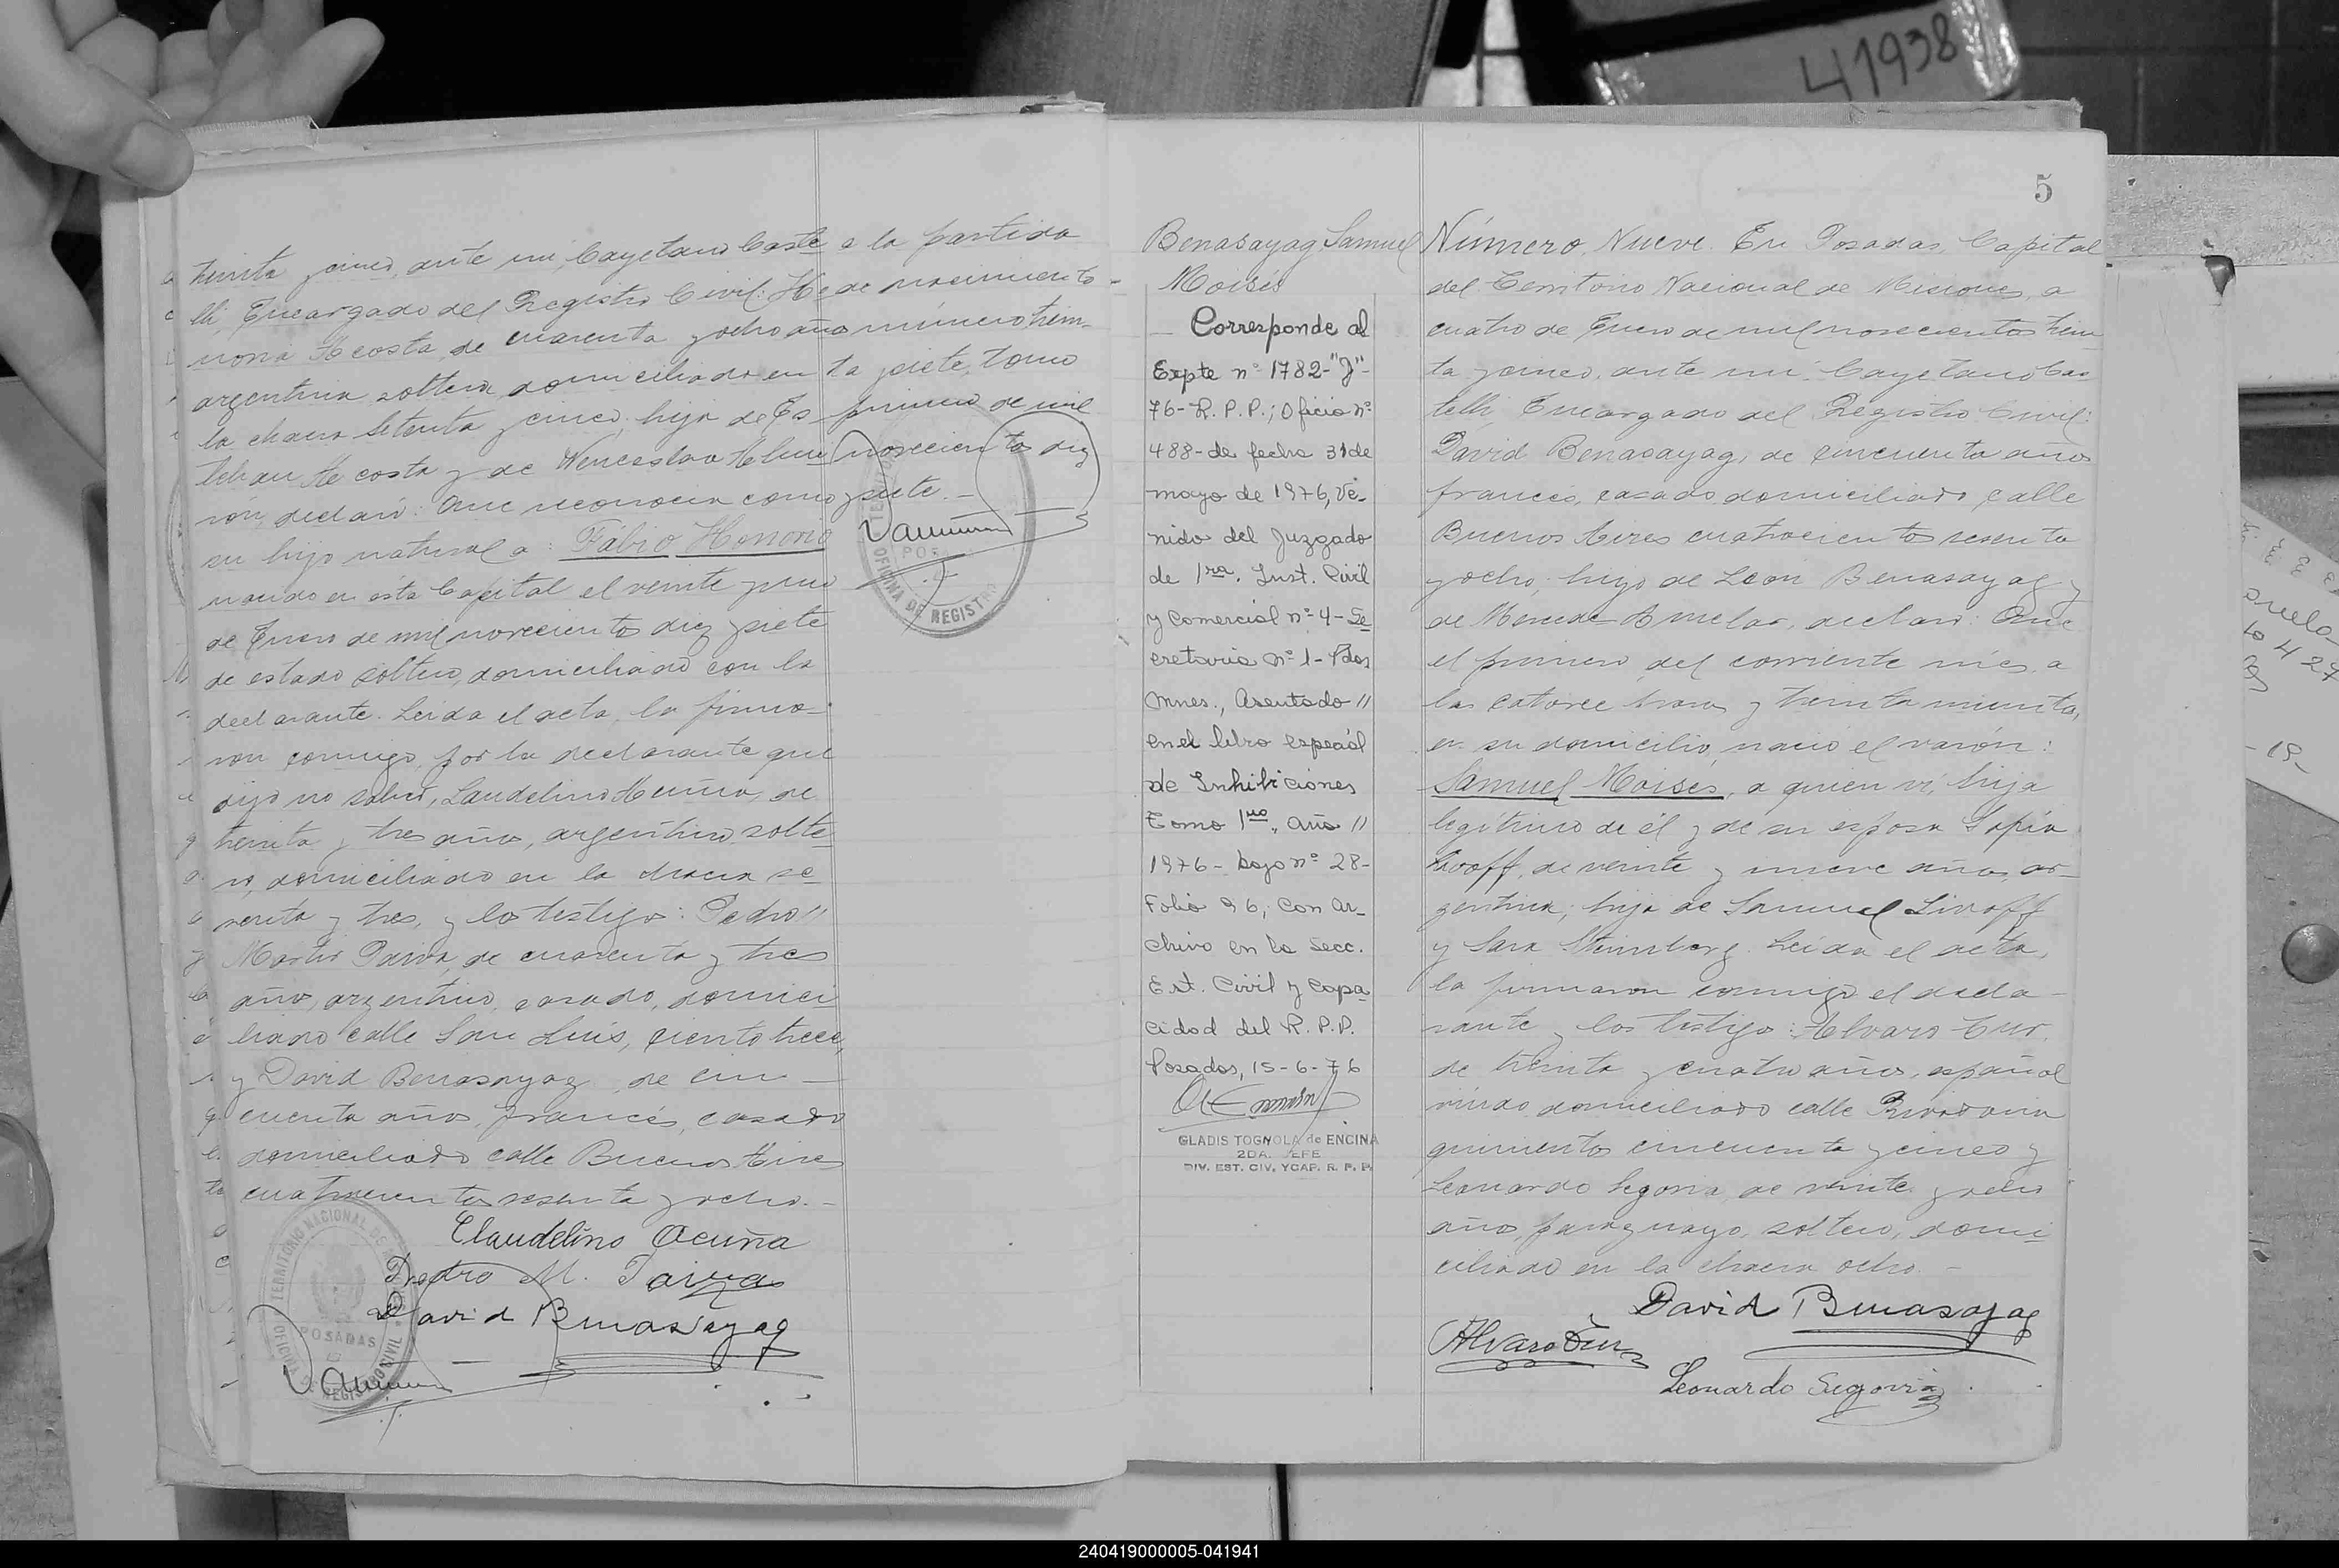 41938
treinta y cinco, ante mi, Cayetano Caste
lli, Encargado del Registro Civil: Ho
noria Acosta, de cuarenta y ocho años
argentina, soltera, domiciliada en
la chacra setenta y cinco, hija de Es
teban Acosta y de Wenceslaa
declaró: Que reconocía como
su hijo natural a: Fabio Honorio
nacido en ésta Capital el veinte y uno
de Enero de mil novecientos diez y siete
de estado soltero, domiciliado con la
declarante. Leida el acta, la firma-
ron conmigo, por la declarante que
dijo no saber, Laudelino Acuña, de
treinta y tres años, argentino, solte
ro, domiciliado en la chacra se
senta y tres, y los testigos: Pedro //
Martir Paiva, de cuarenta y tres
años, argentino, casado, domici
liado calle San Luis, ciento trece,
y David Benasayag, de cin —
cuenta años, francés, casado
domiciliado calle Buenos Aires
cuatrocientos sesenta y ocho.-
a la partida
de nacimiento -
número trein-
ta y siete, tomo
primero de mil
novecientos diez
y siete.-
OFICINA DE REGISTRO
Claudelino Acuña
Pedro M. Paiva
David Benasayag
TERRITORIO NACIONAL DE
POSADAS
OFICINA DE REGISTRO CIVIL
5
Benasayag Samuel
Moisés
Corresponde al
Expte nº 1782-"J"-
76-R.P.P.; Oficio nº
488-de fecha 31 de
mayo de 1976, Ve-
nido del Juzgado
de 1ra. Inst. Civil
y Comercial nº 4-Se
cretaria nº 1-Pdas
Mnes., Asentado //
en el libro especial
de Inhibiciones
Tomo 1ro., Año //
1976- bajo nº 28-
Folio 96, con Ar-
chivo en la Secc.
Est. Civil y Capa
cidad del R.P.P.
Posadas, 15-6-76
GLADIS TOGNOLA de ENCINA
2DA. JEFE
DIV. EST. CIV. YCAP. R. P. P.
Número Nueve. En Posadas, Capital
del Territorio Nacional de Misiones, a
cuatro de Enero de mil novecientos trein
ta y cinco, ante mi, Cayetano Cas
telli, Encargado del Registro Civil:
David Benasayag, de cincuenta años
francés, casado, domiciliado calle
Buenos Aires cuatrocientos sesenta
y ocho, hijo de León Benasayag y
de declaró: Que
el primero del corriente mes, a
las catorce horas y treinta minutos,
en su domicilio, nació el varón:
Samuel Moises, a quien vi, hijo
legítimo de él y de su esposa Sofía
Livoff, de veinte y nueve años, ar-
gentina; hija de Samuel Livoff
y Sara Steimberg. Leida el acta,
la firmaron conmigo el decla-
rante y los testigos: Alvaro Tur,
de treinta y cuatro años, español
viudo, domiciliado calle Rivadavia
quinientos cincuenta y cinco y
Leonardo Segovia, de veinte y ocho
años, paraguayo, soltero, domi
ciliado en la chacra ocho.-
David Benasayag
Alvaro Tur
Leonardo Segovia
240419000005-041941